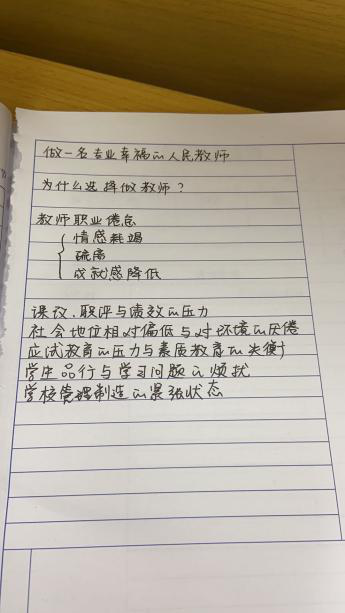 做一名专业幸福的人民教师
为什么选择做教师？
教师职业倦怠
情感耗竭
疏离
成就感降低
课改、职评与绩效的压力
社会地位相对偏低与对环境的厌倦
应试教育的压力与素质教育的失衡
学生品行与学习问题的烦扰
学校管理制造的紧张状态